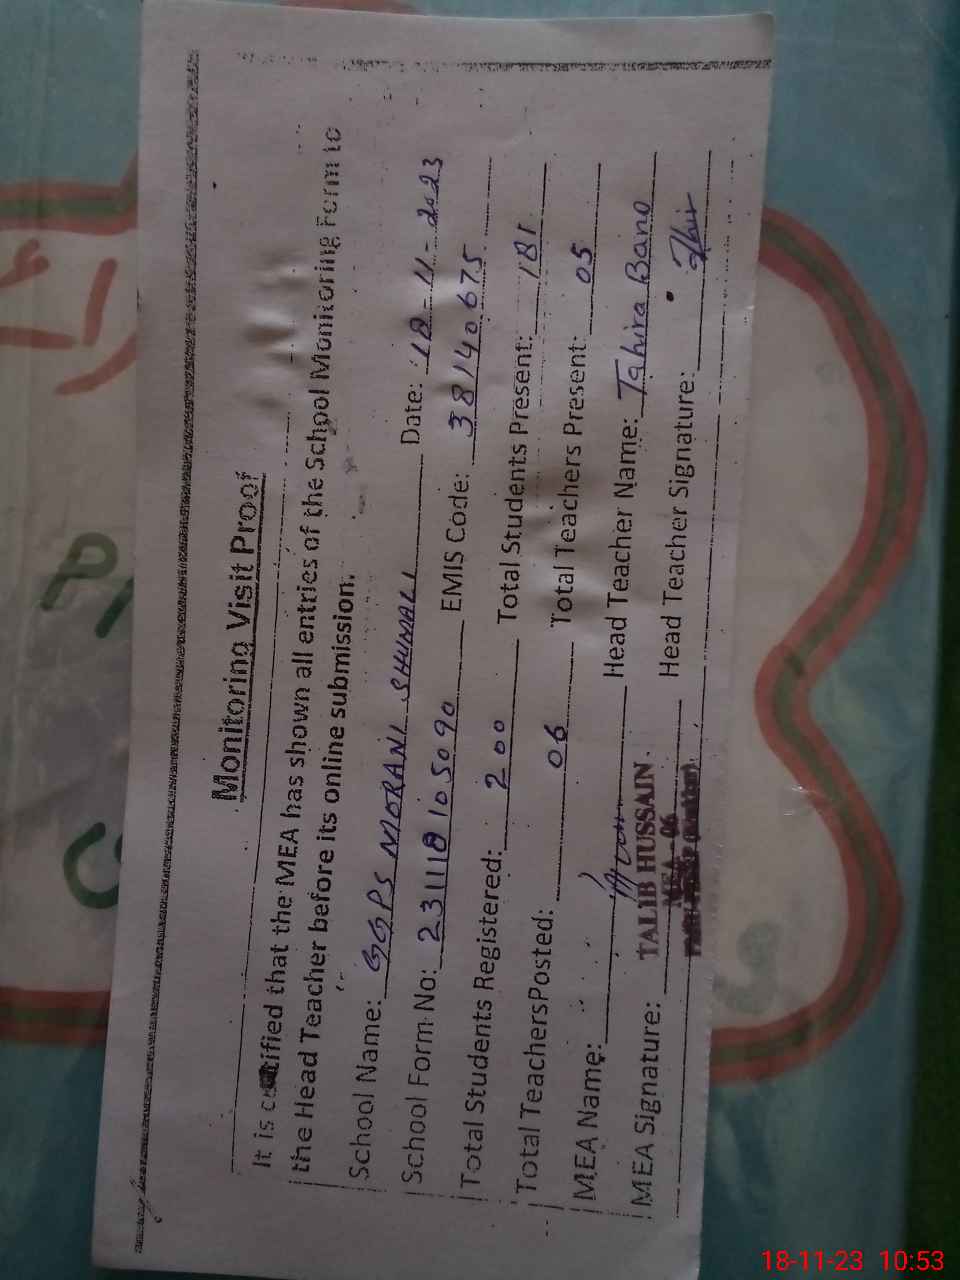 Monitoring Visit Proof
It is certified that the MEA has shown all entries of the School Monitoring Form to
the Head Teacher before its online submission.
School Name: GGPS MORANI SHUMALI Date: 18-11-2023
School Form No: 231118105090 EMIS Code: 38140675
Total Students Registered: 200 Total Students Present: 181
Total Teachers Posted: 06 Total Teachers Present: 05
MEA Name: Head Teacher Name: Tahira Bano
TALIB HUSSAIN
MEA - 06
MEA Signature: Head Teacher Signature:
18-11-23 10:53